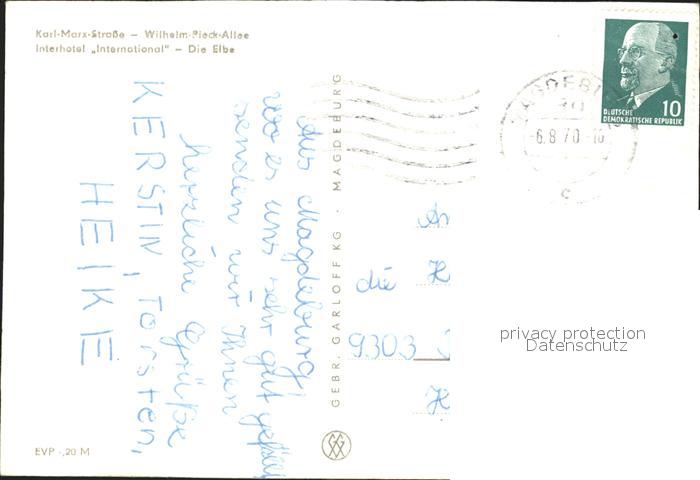 Karl-Marx-Straße – Wilhelm-Pieck-Allee
Interhotel „International“ – Die Elbe
Aus Magdeburg,
wo es uns sehr gut gefällt
senden wir Ihnen
herzliche Grüße
KERSTIN, Torsten,
HEIKE
EVP -,20 M
GEBR. GARLOFF KG · MAGDEBURG
MAGDEBU
-6.8.70.-10
c
10
DEUTSCHE
DEMOKRATISCHE REPUBLIK
An
die
H
9303
H
privacy protection
Datenschutz